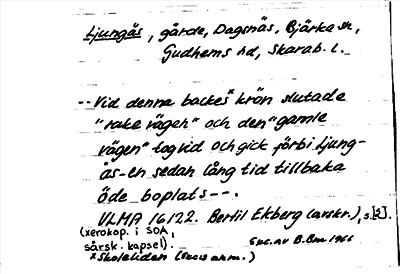 Ljungås, gärde, Dagsnäs, Bjärka sn,
Gudhems hd, Skarab. l.
-- Vid denna backes˟ krön slutade
"rake vägen" och den "gamle
vägen" tog vid och gick förbi Ljung-
ås-en sedan lång tid tillbaka
öde boplats--.
VLMA 16122. Bertil Ekberg (avskr.), s.[2].
(xerokop. i SOA,
särsk. kapsel).
Exc. av B.Bm 1966
˟ Skoletiden (exc:s anm.)